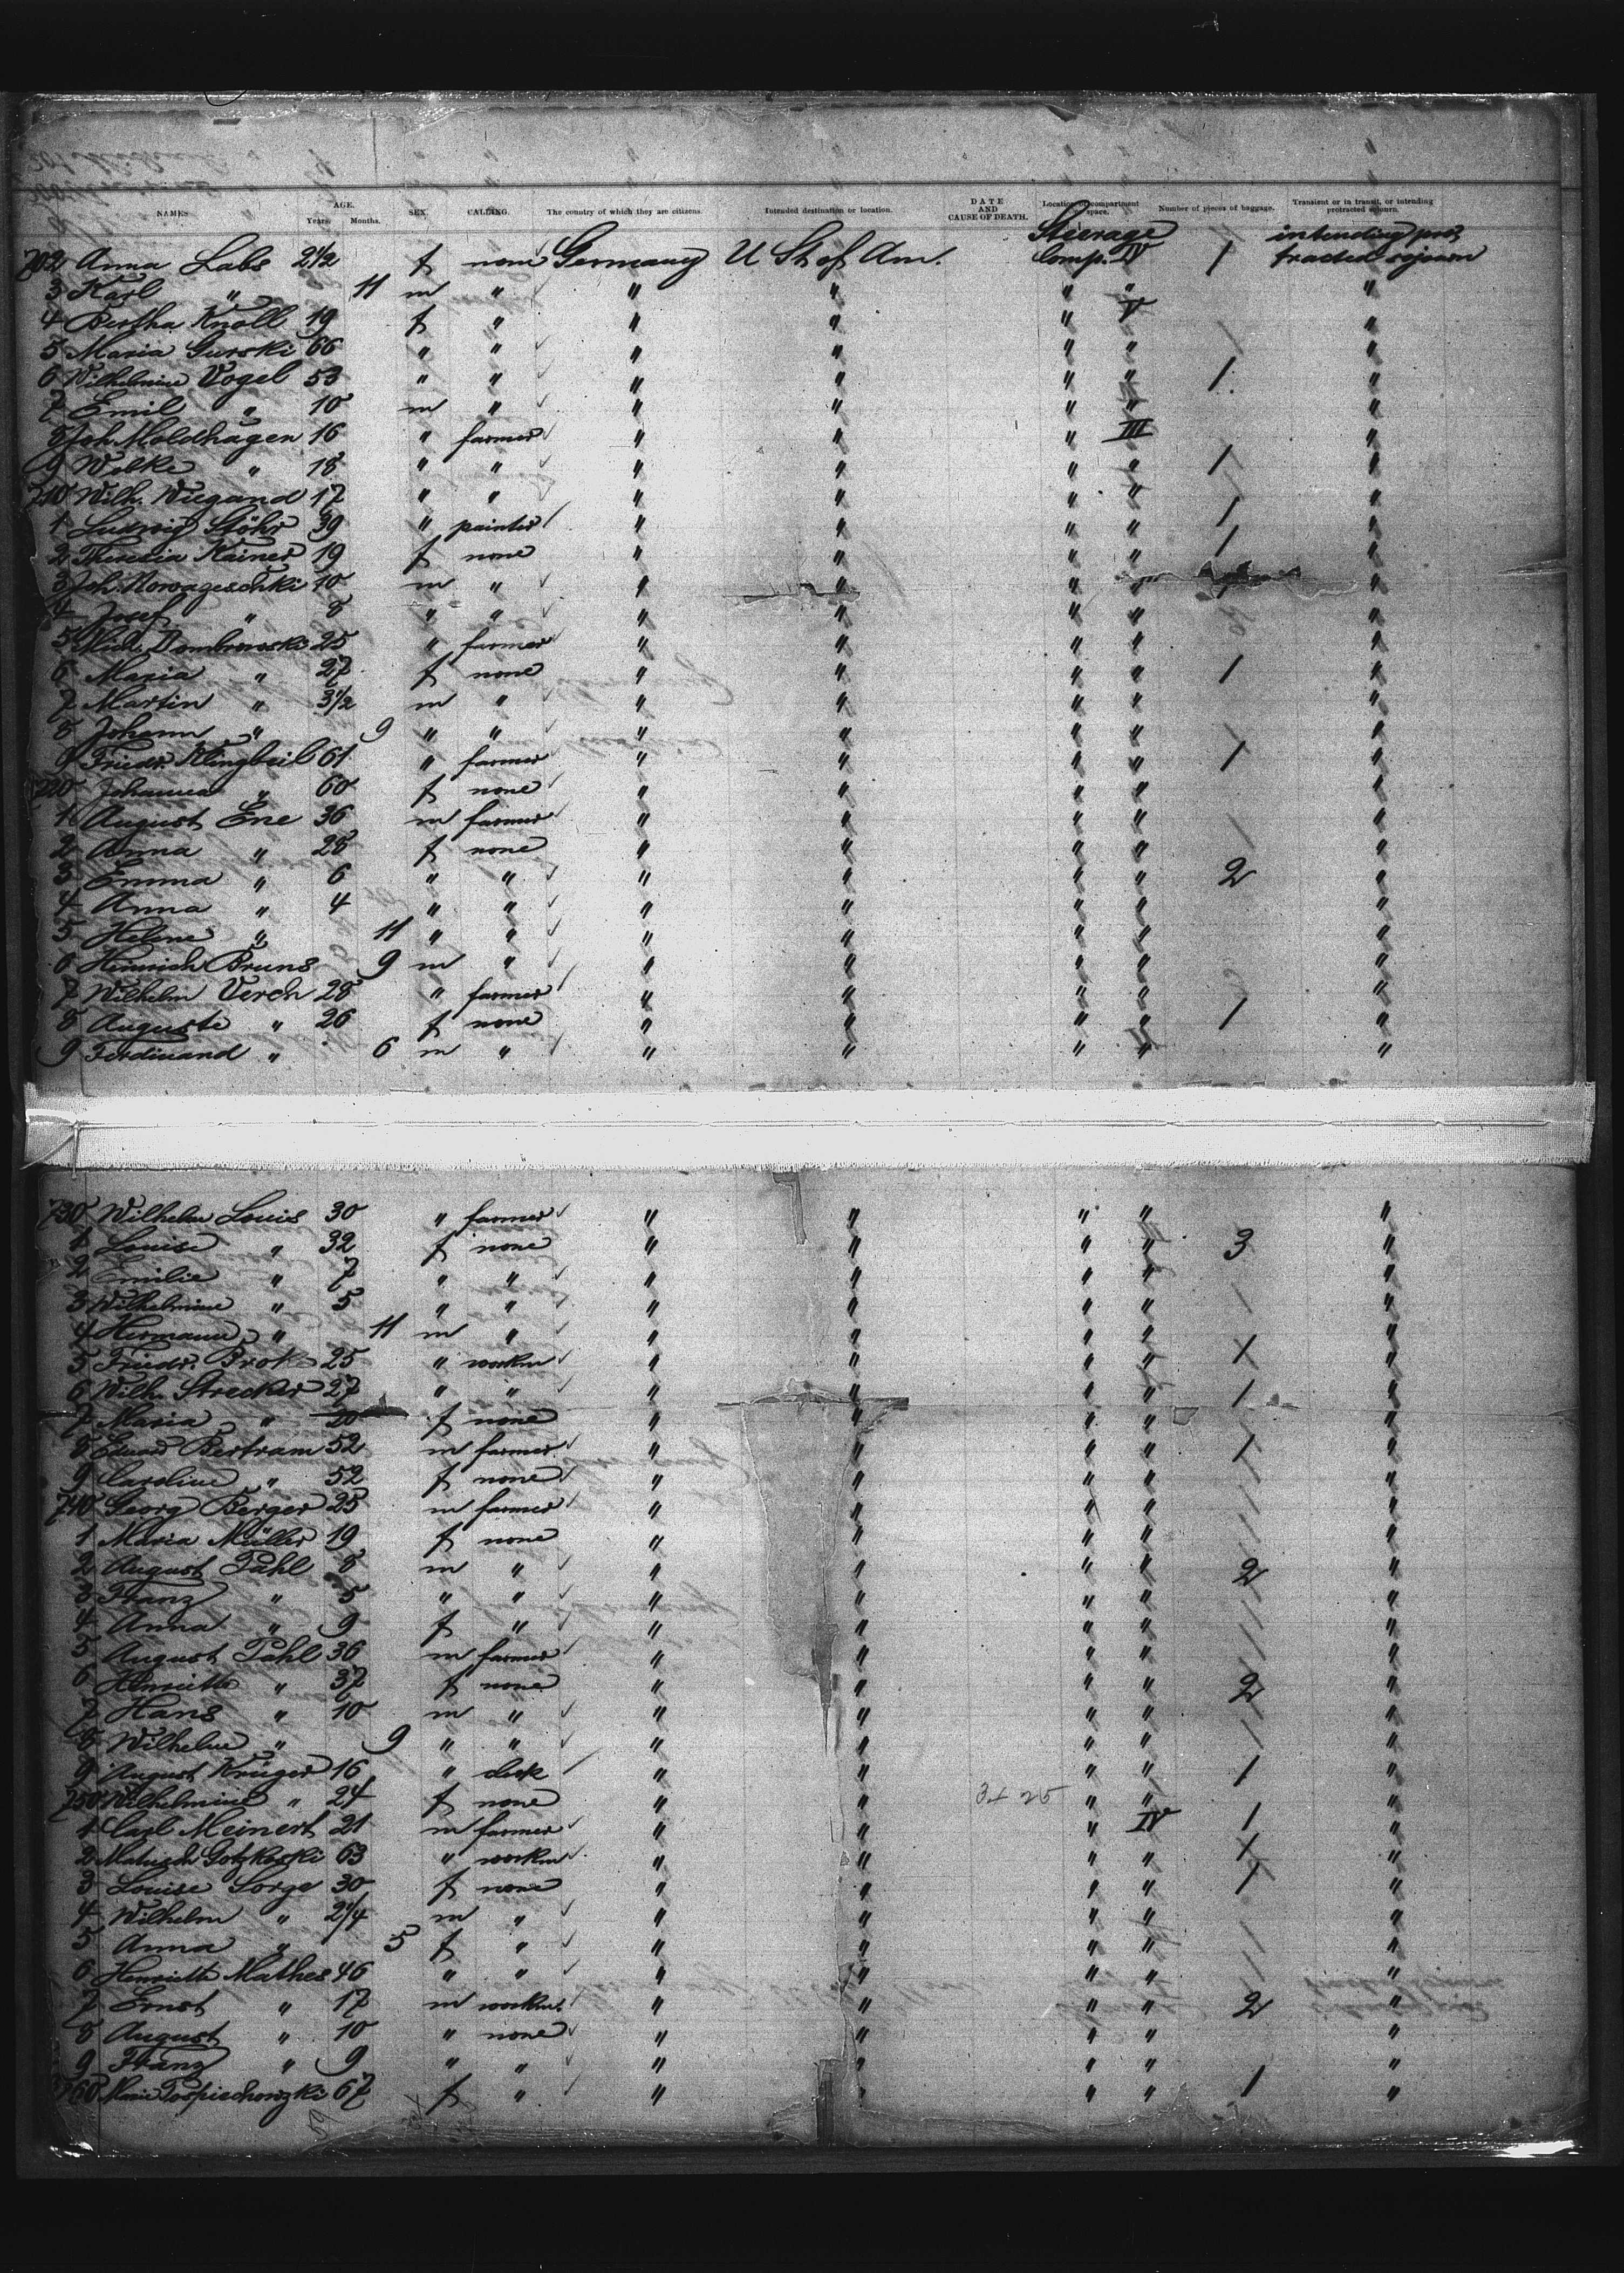 NAMES AGE. Years. Months. SEX. CALLING. The country of which they are citizens. Intended destination or location. DATE AND CAUSE OF DEATH. Location of compartment space. Number of pieces of baggage. Transient or in transit, or intending protracted sojourn.
Steerage intending pro-
702 Anna Labs 2½ f none Germany U St of Am. Comp. IV 1 tracted sojourn
3 Karl " 11 m " " " " " "
4 Bertha Knoll 19 f " " " " V "
5 Maria Gurski 66 " " " " " " "
6 Wilhelmine Vogel 53 " " " " " " 1 "
7 Emil " 10 m " " " " " "
8 Joh. Moldhagen 16 " farmer " " " III "
9 Welke " 18 " " " " " " 1 "
710 Wilh. Wiegand 17 " " " " " " "
1 Ludwig Stöhr 39 " painter " " " " 1 "
2 Theresia Kainer 19 f none " " " " 1 "
3 Joh. Nowazeschki 10 m " " " " " "
4 Josef " 8 " " " " " " "
5 Mich. Dombrowski 25 " farmer " " " " "
6 Maria " 27 f none " " " " 1 "
7 Martin " 3½ m " " " " " "
8 Johann " 9 " " " " " " "
9 Friedr. Klingbeil 61 " farmer " " " " 1 "
720 Johanna " 60 f none " " " " "
1 August Ene 36 m farmer " " " " "
2 Anna " 28 f none " " " " "
3 Emma " 6 " " " " " " 2 "
4 Anna " 4 " " " " " " "
5 Helene " 11 " " " " " " "
6 Heinrich Bruns 9 m " " " " " "
7 Wilhelm Verch 28 " farmer " " " " "
8 Auguste " 26 f none " " " " 1 "
9 Ferdinand " 6 m " " " " " "
730 Wilhelm Louis 30 " farmer " " " " "
1 Louise " 32 f none " " " " 3 "
2 Emilie " 7 " " " " " " "
3 Wilhelmine " 5 " " " " " " "
4 Hermann " 11 m " " " " " "
5 Friedr. Brok 25 " workm " " " " 1 "
6 Wilh. Strecker 27 " " " " " " 1 "
7 Maria " 20 f none " " " " "
8 Eduard Bertram 52 m farmer " " " " 1 "
9 Caroline " 52 f none " " " " "
740 Georg Berger 25 m farmer " " " " "
1 Maria Müller 19 f none " " " " "
2 August Pahl 8 m " " " " " 2 "
3 Franz " 5 " " " " " " "
4 Anna " 9 f " " " " " "
5 August Pahl 36 m farmer " " " " "
6 Henriette " 37 f none " " " " 2 "
7 Hans " 10 m " " " " " "
8 Wilhelm " 9 " " " " " " "
9 August Krüger 16 " " " " " 1 "
750 Wilhelmine " 24 f none " " " " "
1 Carl Meinert 21 m farmer " " " IV 1 "
2 Gotzkoski 63 " workm " " " " 1 "
3 Louise Sorge 30 f none " " " " 1 "
4 Wilhelm " 2¼ m " " " " " "
5 Anna " 5 f " " " " " "
6 Henriette Mathes 46 " " " " " " "
7 Ernst " 17 m workm. " " " " 2 "
8 August " 10 " none " " " " "
9 Franz " 9 " " " " " " "
760 Marie Pospischowzki 67 f " " " " " 1 "